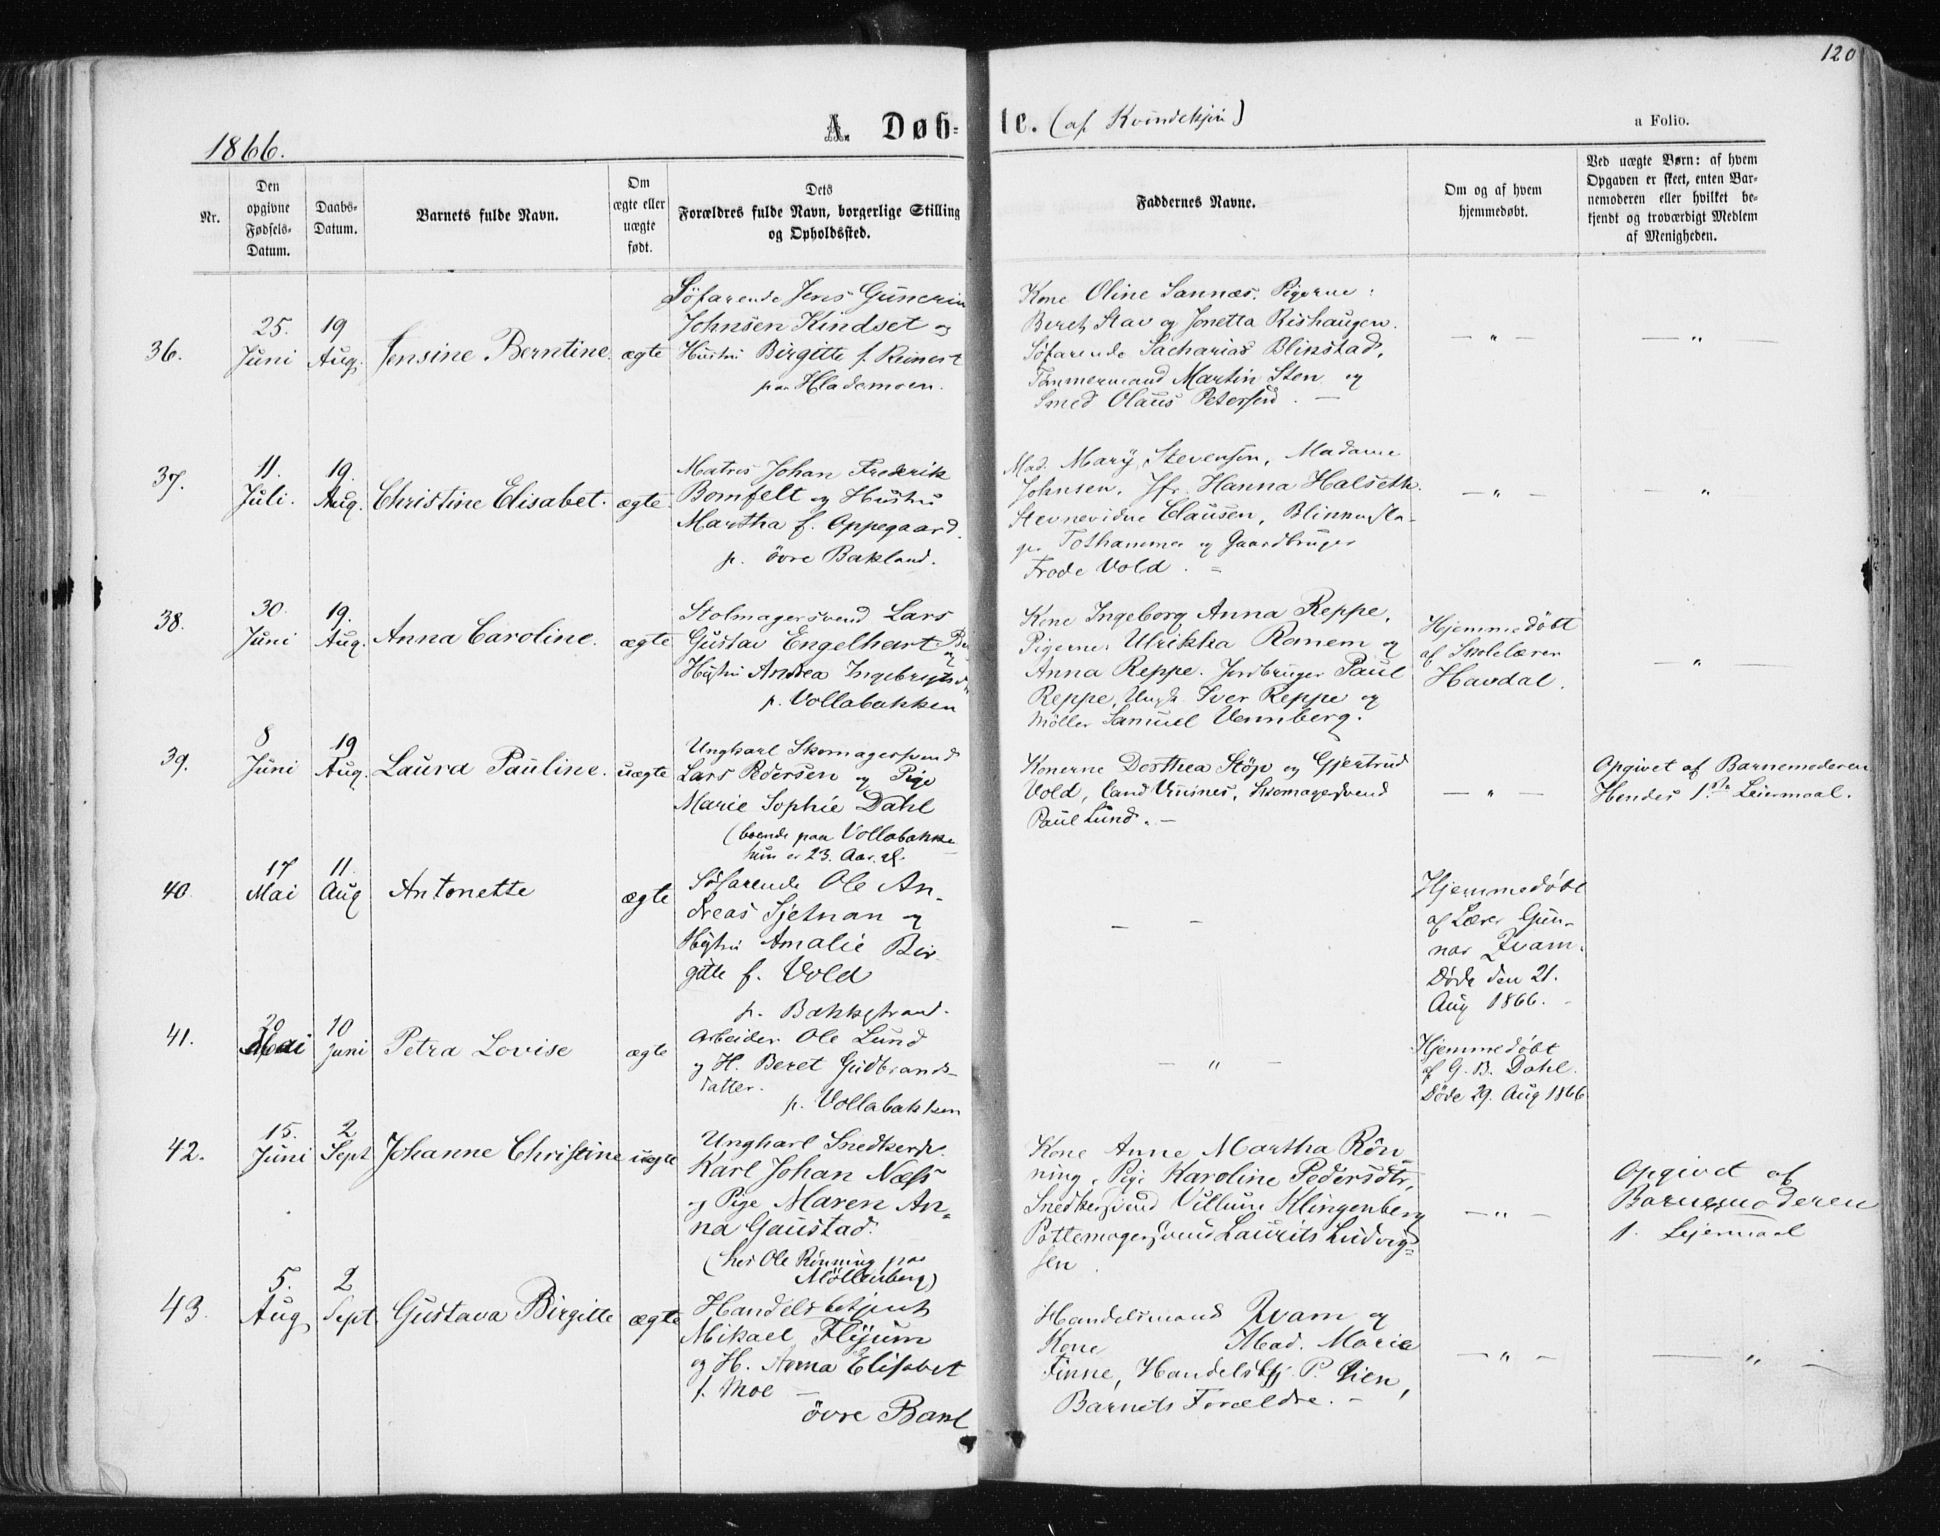 120
1866.
A. Døb-
te. (af Kvindekjön)
a Folio.
Nr.
Den opgivne Fødsels-Datum.
Daabs-Datum.
Barnets fulde Navn.
Om ægte eller uægte født.
Dets Forældres fulde Navn, borgerlige Stilling og Opholdssted.
Faddernes Navne.
Om og af hvem hjemmedøbt.
Ved uægte Børn: af hvem Opgaven er skeet, enten Barnemoderen eller hvilket bekjendt og troværdigt Medlem af Menigheden.
36.
25. Juni
19 Aug.
Jensine Berntine.
ægte
Söfarende Jens
Johnsen Kindset og
Hustru Birgitte f. Reinert
paa Hlademoen.
Kone Oline Sannæs. Pigerne:
Beret Stav og Jonetta Rishaugen.
Söfarende Sacharias Blikstad,
Tömmermand Martin Sten og
Smed Olaus Petersen. —
— " —
— " —
37.
11. Juli.
19. Aug.
Christine Elisabet.
ægte
Matros Johan Frederik
Bomfelt og Hustru
Martha f. Oppegaard.
p. övre Bakland.
Mad. Mary Stevenson, Madame
Johnsen. Jfr. Hanna Halseth.
Stevnevidne Clausen,
Tothammer og Gaardbruger
Frode Vold. =
— " —
— "
38.
30. Juni
19. Aug.
Anna Caroline.
ægte
Stolmagersvend Lars
Gustav Engelhart
og
Hustru Andrea
p. Vollabakken
Kone Ingeborg Anna Reppe,
Pigerne: Ulrikka Ranem og
Anna Reppe. Jordbruger Paul
Reppe, Ungk. Iver Reppe og
Möller Samuel Vennberg.
Hjemmedöbt
af Skolelærer
Havdal.
— " —
39.
8 Juni
19 Aug.
Laura Pauline.
uægte
Ungkarl Skomagersvend
Lars Pedersen og Pige
Marie Sophie Dahl
(boende paa Vollabakke
hun er 23. Aar gl.
Konerne Dorthea Stöp og Gjertrud
Vold, Skomagersvend
Paul Lund. —
— " —
Opgivet af Barnemoderen
Hendes 1ste Leiermaal.
40.
17 Mai
11. Aug
Antonette
ægte
Söfarende Ole An-
dreas Sjetnan og
Hustru Amalie Bir-
gitte f. Vold
p. Bakkestrand.
— —
Hjemmedöbt
af Lærer Gun-
nar Kvam.
Döde den 21.
Aug 1866.
41.
20 Mai
10 Juni
Petra Lovise
ægte
Arbeider Ole Lund
og H. Beret Gudbrands-
datter.
p. Vollabakken
— " —
Hjemmedöbt
af G. B. Dahl.
Döde 29. Aug 1866
42.
15. Juni
2 Sept
Johanne Christine
uægte
Ungkarl Snedkersv.
Karl Johan Næss
og Pige Maren An-
na Gaustad.
(hos Ole Rönning paa
Möllenberg)
Kone Anne Martha Rön-
ning, Pige Karoline Pedersdtr,
Snedkersvend Villum Klingenberg
Pottemagersvend Laurits Ludvig-
sen.
— " —
Opgivet af
Barnemoderen
1. Lejermaal
43.
5. Aug
2 Sept.
Gustava Birgitte
ægte
Handelsbetjent
Mikael Flyum
og H. Anna Elisabet
f. Moe —
övre Bakl
Handelsmand Kvam og
Kone Mad. Marie
Finne, Handelsbtj. P. Lien,
Barnets Forældre. —
— " —
— " —